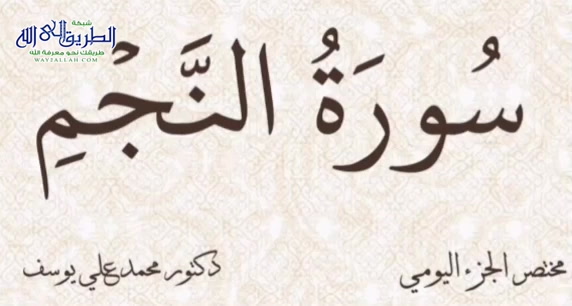 شبكة
الطريق إلى الله
طريقك نحو معرفة الله
WAY2ALLAH.COM
سُورَةُ النَّجْمِ
مختصر الجزء اليومي
دكتور محمد علي يوسف